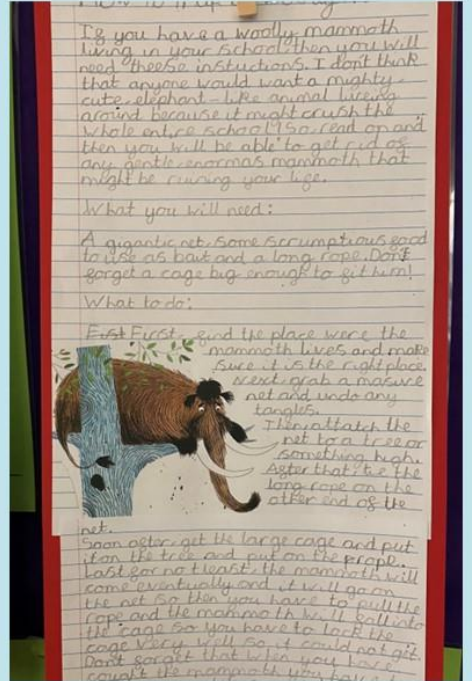 If you have a woolly mammoth
living in your school then you will
need theese instuctions. I dont think
that anyone would want a mighty,
cute, elephant-like animal lurcing
around because it might crush the
whole entire school! So, read on and
then you will be able to get rid of
any gentle, enormas mammoth that
might be ruining your life.
What you will need:
A gigantic net, some scrumptious food
to use as bait and a long rope. Dont
forget a cage big enough to fit him!
What to do:
First First, find the place were the
mammoth lives and make
sure it is the right place.
Next, grab a masive
net and undo any
tangles.
Then, attatch the
net to a tree or
something high.
After that, tie the
long rope on the
other end of the
net.
Soon after, get the large cage and put
it on the tree and put on the prope.
Last for not least, the mammoth will
come eventually and it will go on
the net so then you have to pull the
rope and the mammoth will fall into
the cage so you have to lock the
cage very well so it could not get.
Dont forget that when you have
caught the mammoth you have t